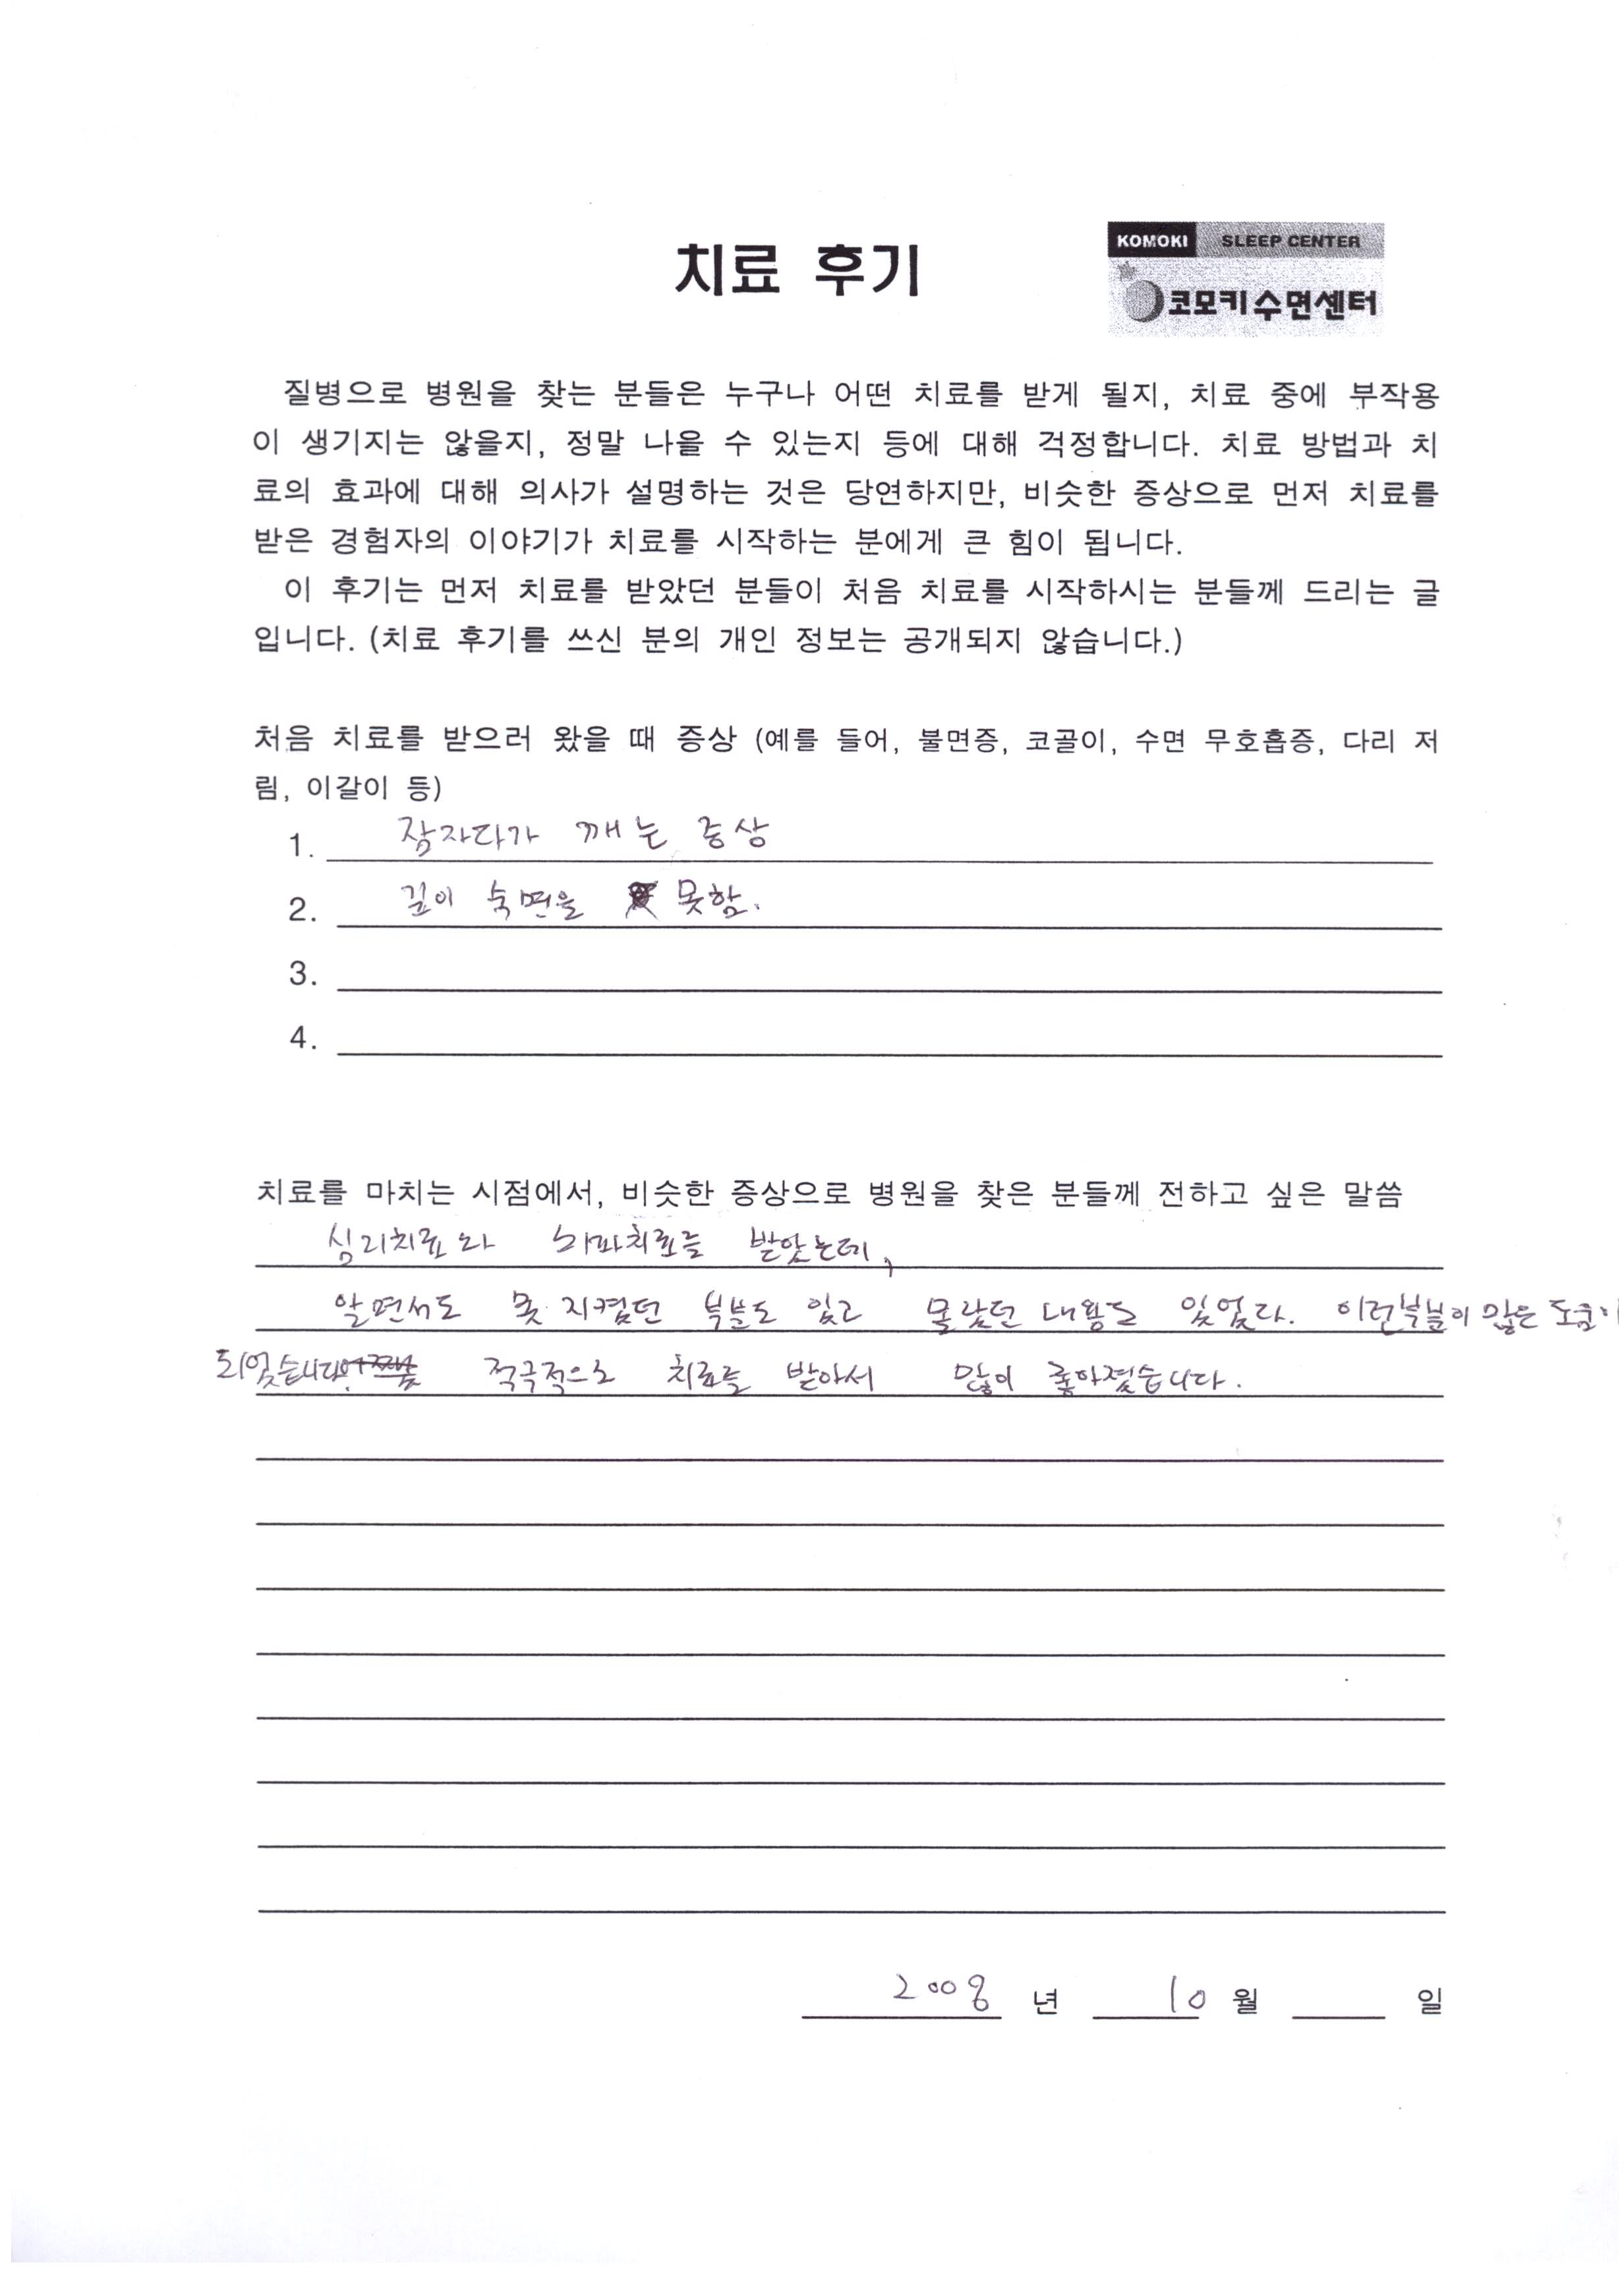 치료 후기
KOMOKI SLEEP CENTER
코모키수면센터
질병으로 병원을 찾는 분들은 누구나 어떤 치료를 받게 될지, 치료 중에 부작용
이 생기지는 않을지, 정말 나을 수 있는지 등에 대해 걱정합니다. 치료 방법과 치
료의 효과에 대해 의사가 설명하는 것은 당연하지만, 비슷한 증상으로 먼저 치료를
받은 경험자의 이야기가 치료를 시작하는 분에게 큰 힘이 됩니다.
이 후기는 먼저 치료를 받았던 분들이 처음 치료를 시작하시는 분들께 드리는 글
입니다. (치료 후기를 쓰신 분의 개인 정보는 공개되지 않습니다.)
처음 치료를 받으러 왔을 때 증상 (예를 들어, 불면증, 코골이, 수면 무호흡증, 다리 저
림, 이갈이 등)
1. 잠자다가 깨는 증상
2. 깊이 숙면을 못함.
3.
4.
치료를 마치는 시점에서, 비슷한 증상으로 병원을 찾은 분들께 전하고 싶은 말씀
심리치료와 뇌파치료를 받았는데,
알면서도 못 지켰던 부분도 있고 몰랐던 내용도 있었다. 이런부분이 많은 도움이
되었습니다. 적극적으로 치료를 받아서 많이 좋아졌습니다.
2008 년 10 월 일